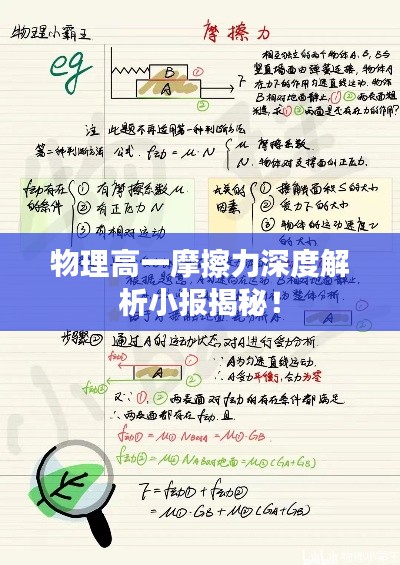 物理小霸王
摩擦力
eg
B ①
A
F
②
相互独立的两个物体A、B,B与
竖直墙面由弹簧连接,物体A
在力F的作用匀速直线运动,物体
B相对地面静止,①②两表面粗
注 此题不再适用第一种判断方法
第二种判断方法 公式 f动=μ·N
μ 摩擦系数
N 物体对支撑面的正压力
f动存在的条件
① 有摩擦系数μ
② 有正压力N
③ 有相对运动
无关的因素
① 接触面积S的大小
② 受力F的大小
③ 物体的运动速度v的大小
物理高一摩擦力深度解
析小报揭秘!
步骤② 通过A的运动状态,对A进行受力分析
f动①
A
F
f动②
∵A为匀速直线运动
∴A受力平衡,合力为零
又∵①、②两表面对f动的存在条件都满足
∴两表面都存在f动,且
f动①=μ①NB对A=μ①·GB
f动②=μ②NAB对地面=μ②(GA+GB)
F=f动①+f动②
=μ①·GB+μ②(GA+GB)